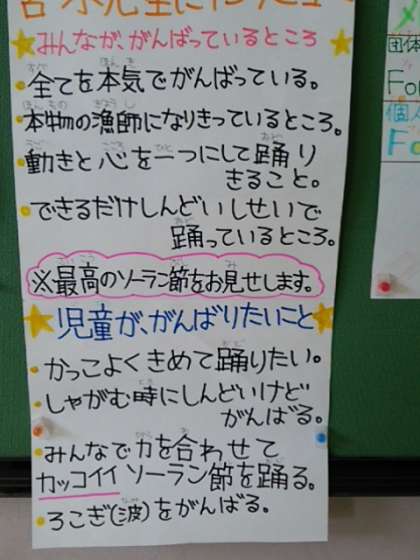 先生にインタビュー
みんなが、がんばっているところ
・全てを本気でがんばっている。
・本物の漁師になりきっているところ。
・動きと心を一つにして踊り
きること。
・できるだけしんどいしせいで
踊っているところ。
※最高のソーラン節をお見せします。
児童が、がんばりたいこと
・かっこよくきめて踊りたい。
・しゃがむ時にしんどいけど
がんばる。
・みんなで力を合わせて
カッコイイソーラン節を踊る。
・ろこぎ(波)をがんばる。
メ
団体
For
個人
Fo